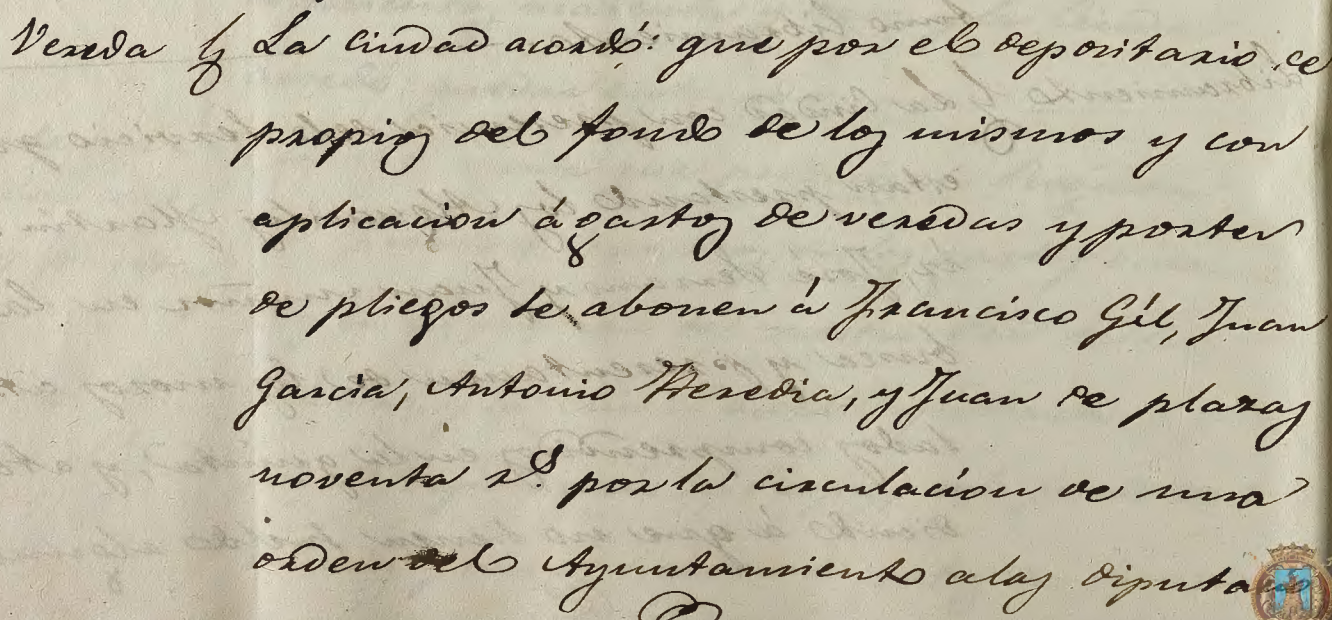 Vereda § La ciudad acordó: que por el depositario de
propios del fondo de los mismos y con
aplicacion á gastos de veredas y portes
de pliegos se abonen á Francisco Gil, Juan
Garcia, Antonio Heredia, y Juan de plazas
noventa rs. por la circulacion de una
orden del Ayuntamiento a las diputacio